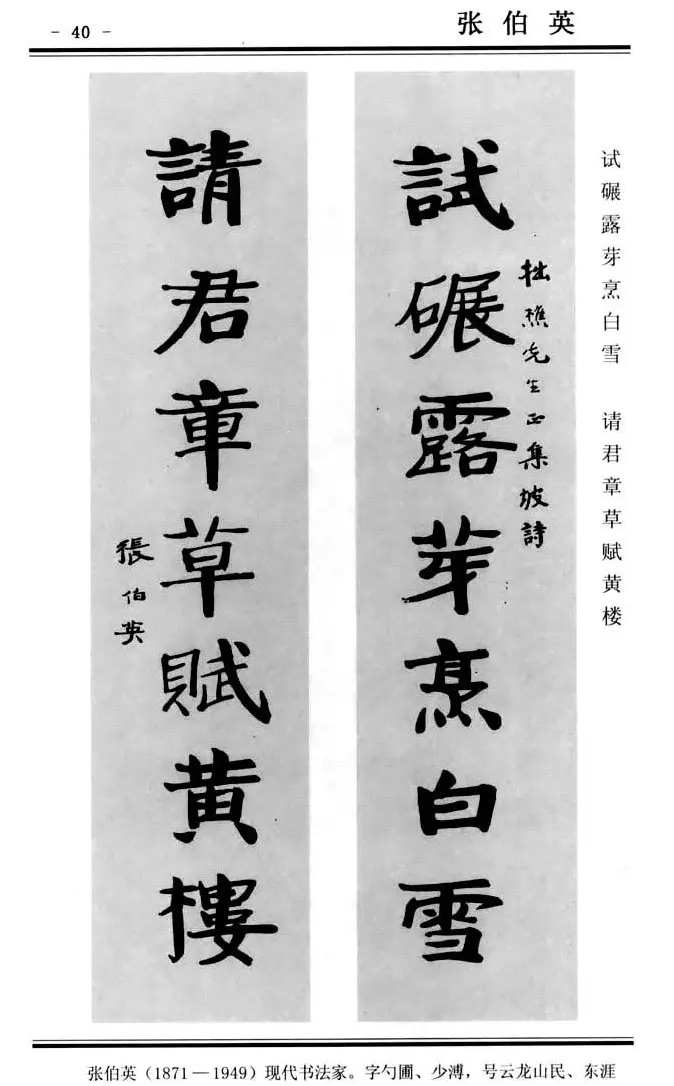 - 40 -
张伯英
試碾露芽烹白雪
拙樵先生正集坡詩
請君章草賦黄樓
張伯英
试碾露芽烹白雪 请君章草赋黄楼
张伯英(1871—1949)现代书法家。字勺圃、少溥,号云龙山民、东涯